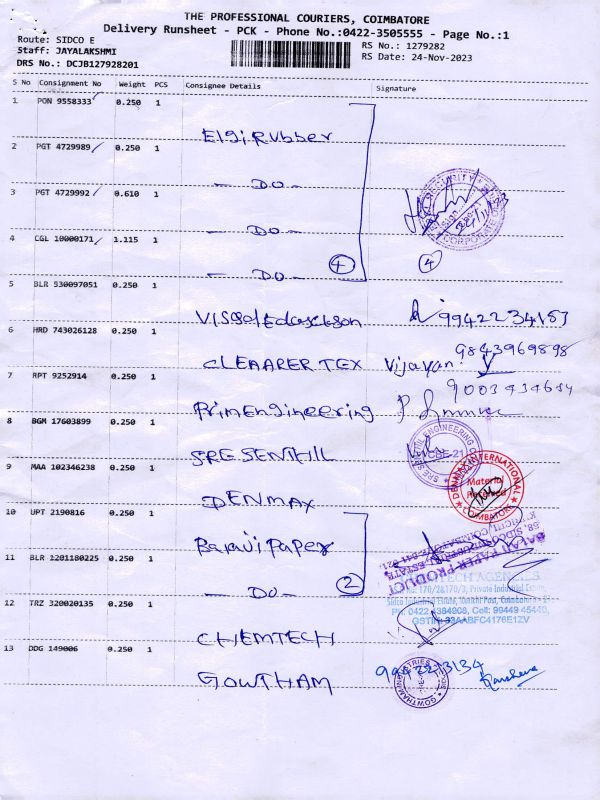 THE PROFESSIONAL COURIERS, COIMBATORE
Delivery Runsheet - PCK - Phone No.:0422-3505555 - Page No.:1
Route: SIDCO E
RS No.: 1279282
Staff: JAYALAKSHMI
RS Date: 24-Nov-2023
DRS No.: DCJB127928201
S No Consignment No Weight PCS Consignee Details Signature
1 PON 9558333 0.250 1
Elgi Rubber
2 PGT 4729989 0.250 1
- DO -
3 PGT 4729992 0.610 1
- DO -
4 CGL 10000171 1.115 1
- DO - 4 4
5 BLR 530097051 0.250 1
9942234153
6 HRD 743026128 0.250 1
9843969898
CLEAARER TEX Vijayan
7 RPT 9252914 0.250 1
Prim Engineering
8 BGM 17603899 0.250 1
SRE SENTHIL
9 MAA 102346238 0.250 1
DENMAX INTERNATIONAL
Material
COIMBATORE
DENMAX
10 UPT 2190816 0.250 1
Balaji Paper
11 BLR 1201180225 0.250 1
- DO - 2
BALAJI PAPER PRODUCT
12 TRZ 320020135 0.250 1
CHEMTECH
13 DDG 149006 0.250 1
GOWTHAM
GOWTHAM INDUSTRIES